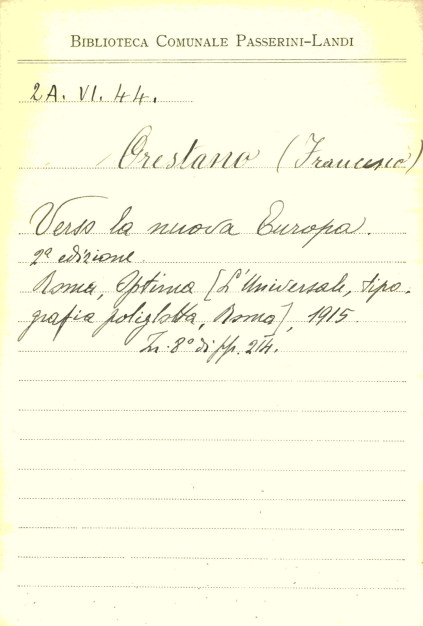 BIBLIOTECA COMUNALE PASSERINI-LANDI
2A. VI. 44.
Orestano (Francesco)
Verso la nuova Europa.
2ª edizione.
Roma, Optima [L'Universale, tipo-
grafia poliglotta, Roma], 1915.
In-8° di pp. 214.